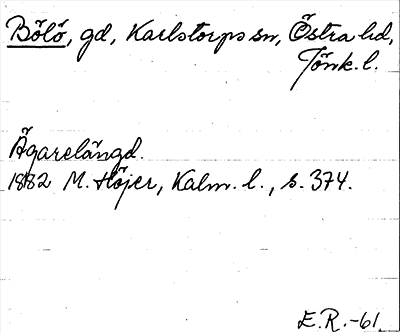 Bölö, gd, Karlstorps sn, Östra hd,
Jönk. l.
Ägarelängd.
1882 M. Höjer, Kalm. l., s. 374.
E.R.-61